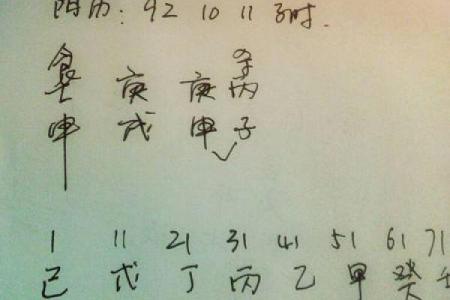 阴历: 92 10 11 子时.
食 杀
壬 庚 庚 丙
申 戌 申 子
1 11 21 31 41 51 61 71
己 戊 丁 丙 乙 甲 癸 壬